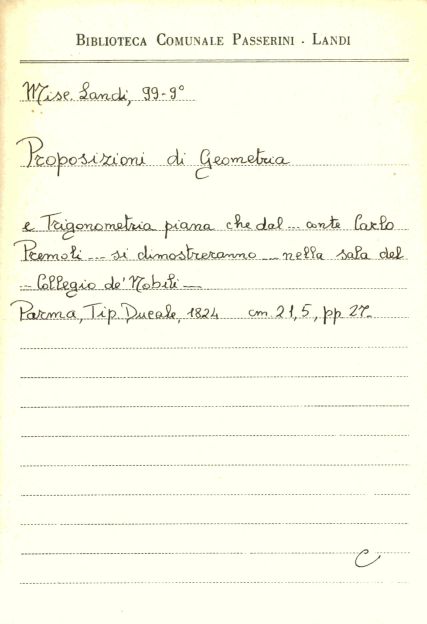 BIBLIOTECA COMUNALE PASSERINI - LANDI
Misc. Landi, 99-9°
Proposizioni di Geometria
e Trigonometria piana che dal ... conte Carlo
Premoli ... si dimostreranno ... nella sala del
... Collegio de' Nobili ...
Parma, Tip. Ducale, 1824 cm. 21,5, pp. 27.
C